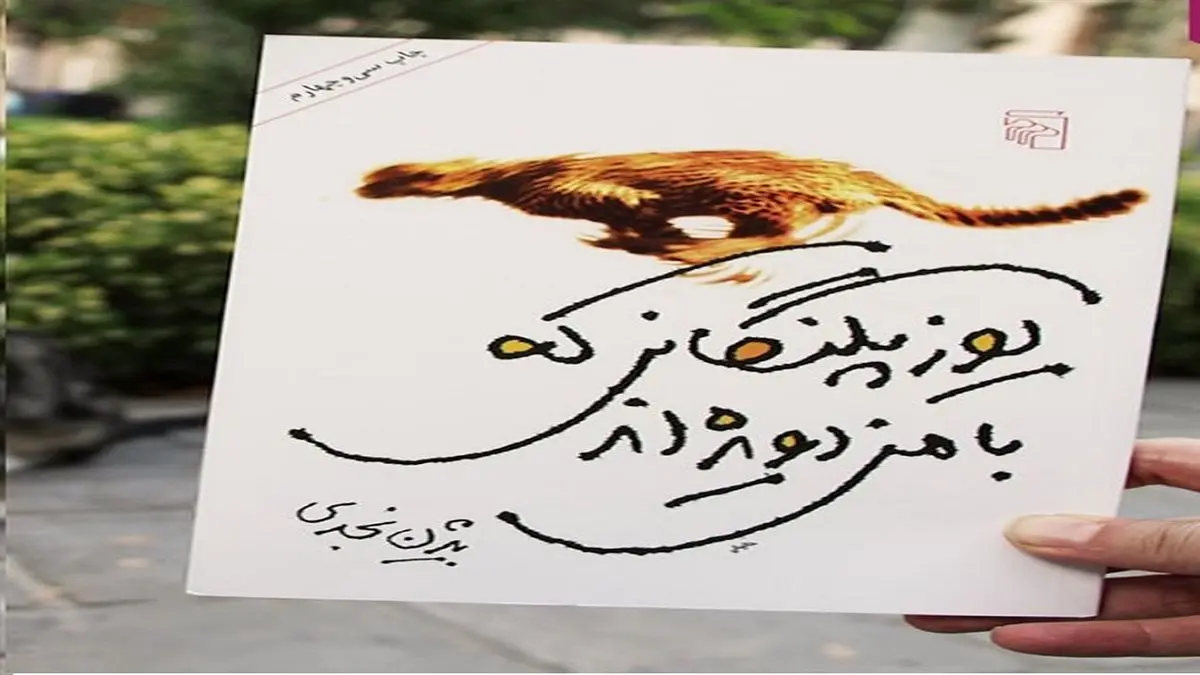 چاپ سی و چهارم
یوزپلنگانی که
با من دویده‌اند
بیژن نجدی